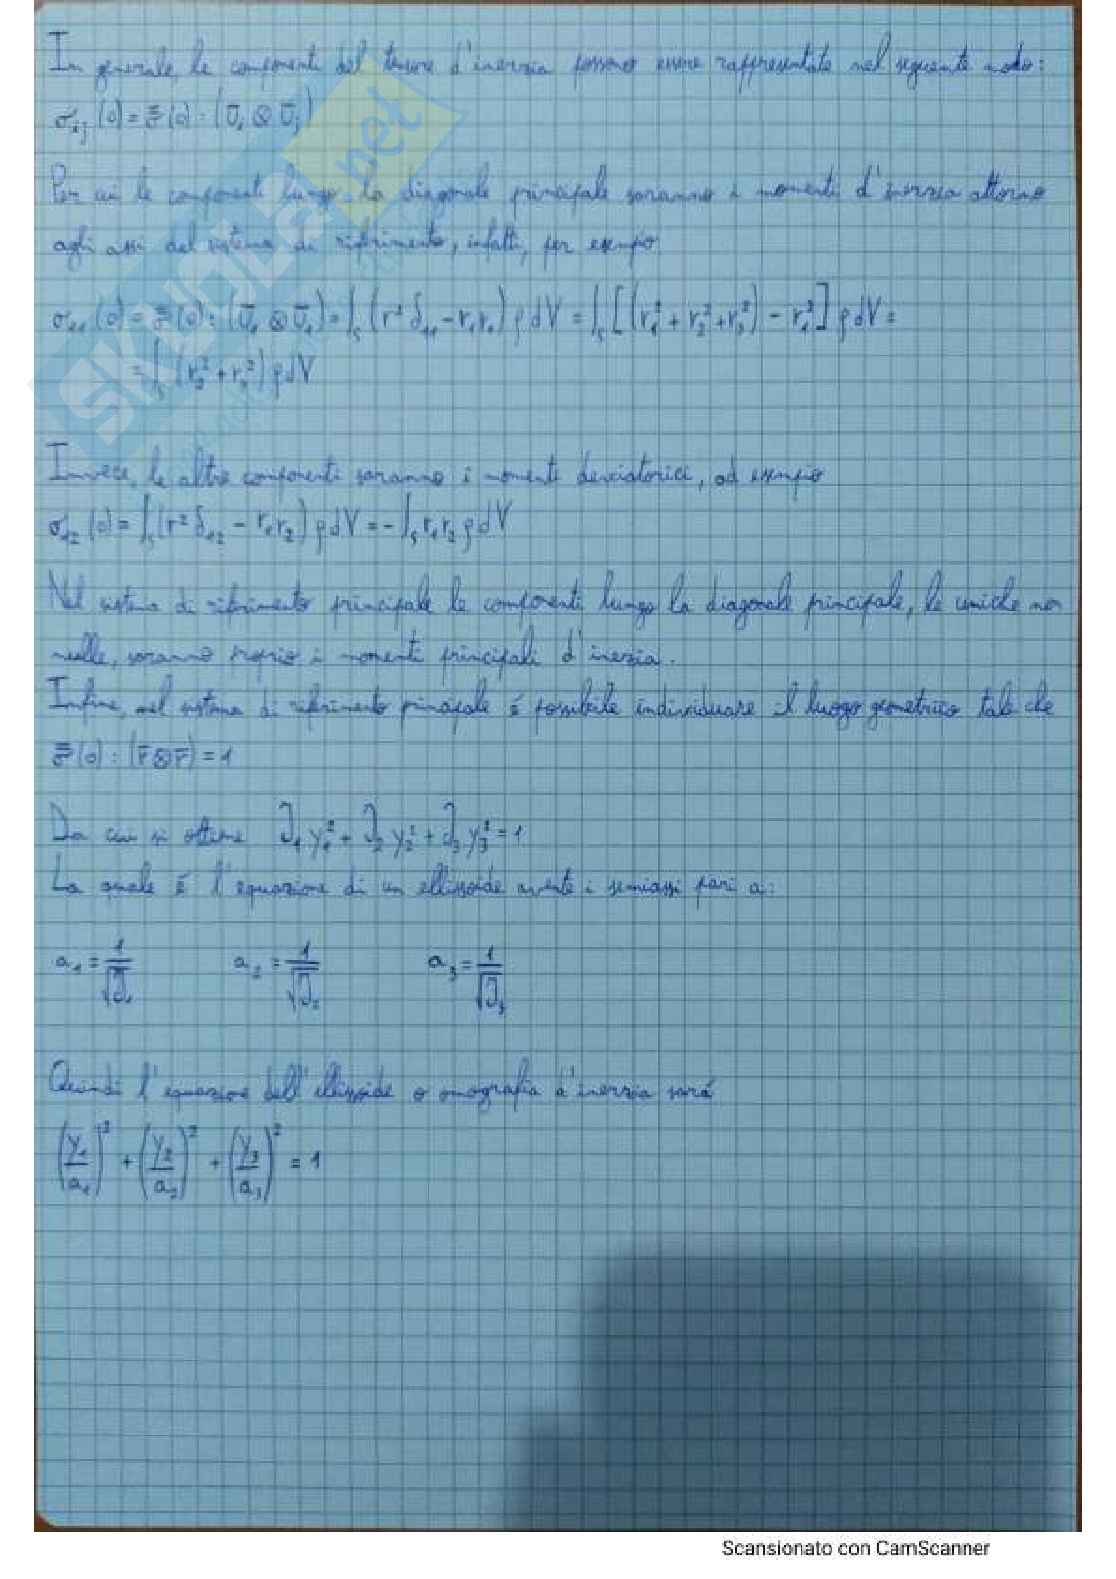 In generale, le componenti del tensore d'inerzia possono essere rappresentate nel seguente modo:
σij (o) = σ̿ (o) : (Ui ⊗ Uj)
Per cui le componenti lungo la diagonale principale saranno i momenti d'inerzia attorno
agli assi del sistema di riferimento, infatti, per esempio
σ11 (o) = σ̿ (o) : (U1 ⊗ U1) = ∫s (r² δ11 - r1 r1) ρ dV = ∫s [(r1² + r2² + r3²) - r1²] ρ dV =
= ∫s (r2² + r3²) ρ dV
Invece, le altre componenti saranno i momenti deviatorici, ad esempio
σ12 (o) = ∫s (r² δ12 - r1 r2) ρ dV = - ∫s r1 r2 ρ dV
Nel sistema di riferimento principale le componenti lungo la diagonale principale, le uniche non
nulle, saranno proprio i momenti principali d'inerzia.
Infine, nel sistema di riferimento principale é possibile individuare il luogo geometrico tale che
σ̿ (o) : (r̄ ⊗ r̄) = 1
Da cui si ottiene J1 y1² + J2 y2² + J3 y3² = 1
La quale é l'equazione di un ellissoide avente i semiassi pari a:
a1 = 1/√J1 a2 = 1/√J2 a3 = 1/√J3
Quindi l'equazione dell'ellissoide o omografia d'inerzia sará
(y1/a1)² + (y2/a2)² + (y3/a3)² = 1
SKUOLA.net
Scansionato con CamScanner